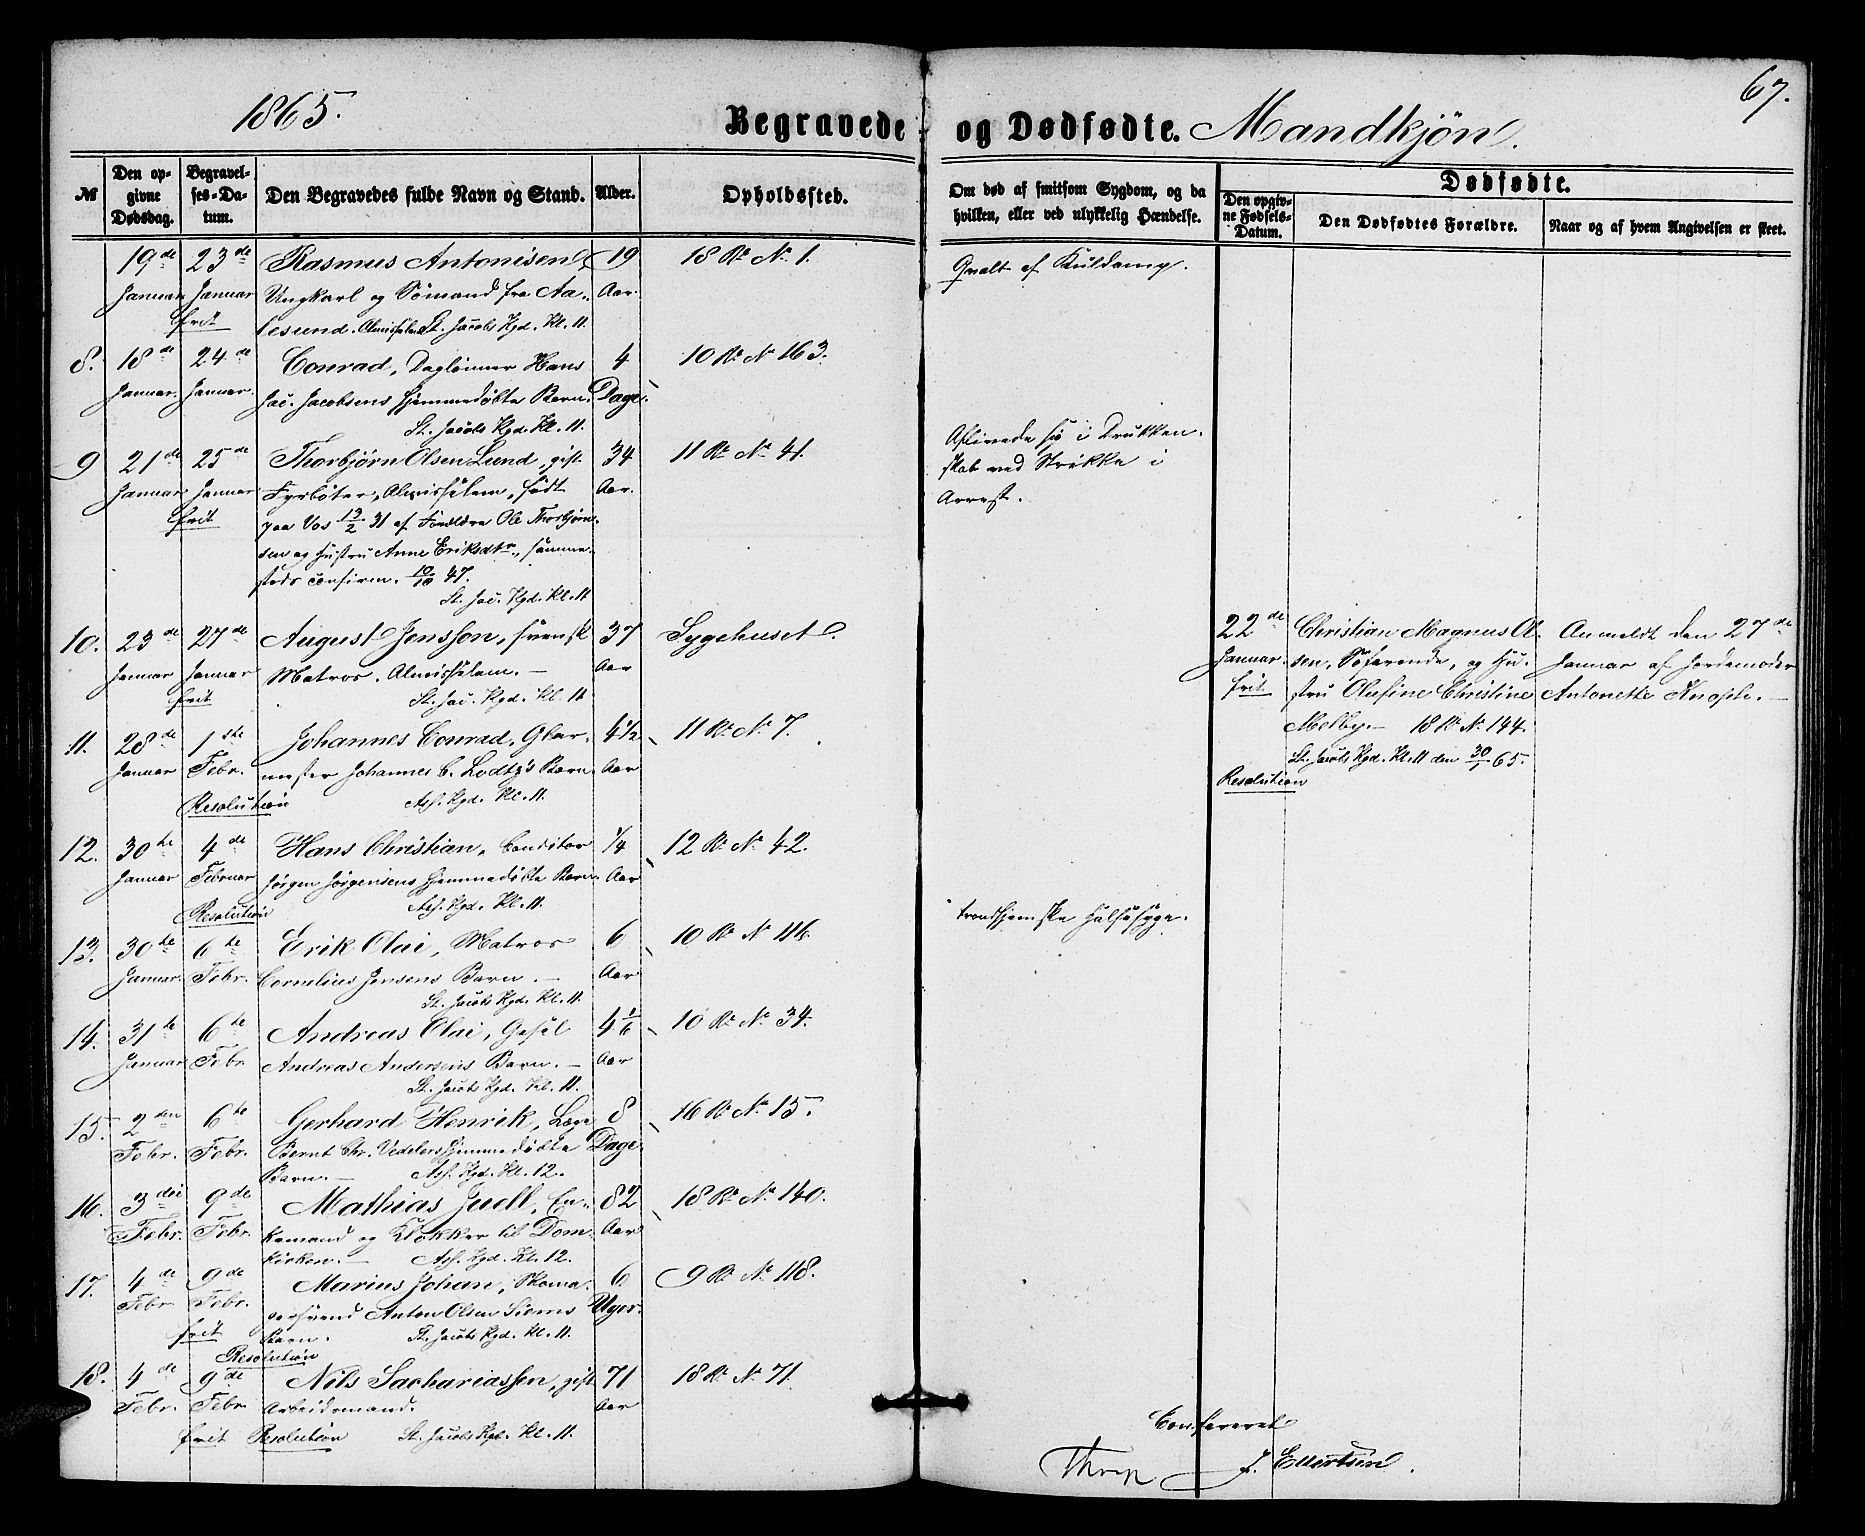 1865.
67.
Begravede og Dødfødte. Mandkjøn.
№
Den opgivne Dødsdag.
Begravelses-Datum.
Den Begravedes fulde Navn og Stand.
Alder.
Opholdssted.
Om død af smitsom Sygdom, og da hvilken, eller ved ulykkelig Hændelse.
Dødfødte.
Den opgivne Fødsels-Datum.
Den Dødfødtes Forældre.
Naar og af hvem Angivelsen er skeet.
19de 23de Rasmus Antonisen, 19 18 R. No. 1. Qvalt af Kuldamp.
Januar Januar Ungkarl og Sømand fra Aa- Aar.
frit lesund. Almissel. St. Jacobs Kgd. Kl. 11.
8. 18de 24de Conrad, Dagleiner Hans 4 10 R. No 163.
Januar. Januar. Jac. Jacobsens hjemmedøbte Barn. Dage.
St. Jacobs Kgd. Kl. 11.
9 21de 25de Thorbjørn Olsen Lund, gift 34 11 R. No 41. Aflivede sig i Drukken-
Januar. Januar Fyrbøter, Almisselem, født Aar. skab ved Strikke i
frit paa Vos 13/2 31 af Forældre Ole Thorbjørn- Arrest.
sen og Hustru Anne Eriksdtr., samme-
steds confirm. 10/10 47.
St. Jac. Kgd. Kl. 11
10. 23de 27de August Jonsson, svensk 37 Sygehuset.
Januar Januar Matros. Almisselem. — Aar
frit St. Jac. Kgd. Kl. 11
22de Christian Magnus Ol- Anmeldt den 27de
Januar. sen, Søfarende, og Hu- Januar af Jordemoder
frit stru Olufine Christine Antonette Knoph. —
Melby. — 18 R. No. 144.
St. Jacobs Kgd. Kl. 11 den 30/1 65.
Resolution
11. 28de 1ste Johannes Conrad, Glar- 4½ 11 R. No 7.
Januar Febr. mester Johannes C. Lodtz's Barn. Aar
Resolution Ass. Kgd. Kl. 11.
12. 30te 4de Hans Christian, Conditor ¼ 12 R. No 42.
Januar Februar Jørgen Jørgensens hjemmedøbte Barn. Aar
Resolution Ass. Kgd. Kl. 11.
13. 30te 6te Erik Olai, Matros 6 10 R. No 116. trondhjemske Halssyge.
Januar. Febr. Cornelius Jensens Barn. — Aar
St. Jacobs Kgd. Kl. 11.
14. 31te 6te Andreas Olai, Gesel 4 1/6 10 R. No. 34.
Januar Febr. Andreas Andersens Barn. — Aar
St. Jacobs Kgd. Kl. 11.
15. 2den 6te Gerhard Henrik, Læge 8 16 R. No. 15.
Febr. Febr. Bernt Chr. Vedelers hjemmedøbte Dage.
Barn. — Ass. Kgd. Kl. 12.
16. 3die 9de Mathias Juell, En- 82 18 R. No. 140.
Febr. Febr. kemand og Klokker til Dom- Aar
kirken. — Ass. Kgd. Kl. 12.
17. 4de 9de Marius Johan, Skoma- 6 9 R. No 118.
Febr. Febr. gersvend Anton Olsen Siems Uger.
frit Barn. St. Jacobs Kgd. Kl. 11.
Resolution
18. 4de 9de Nils Sachariassen, gift 71 18 R. No 71.
Febr. Febr. Arbeidsmand. Aar
frit Resolution St. Jacobs Kgd. Kl. 11.
Confereret
J. Ellertsen.